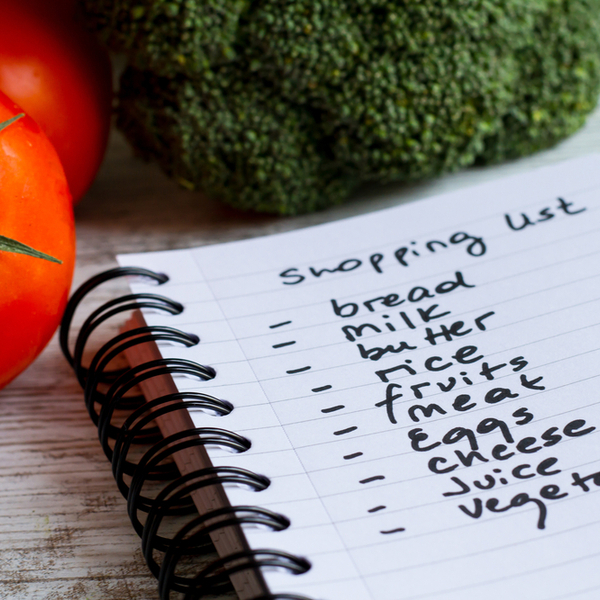 Shopping list
- bread
- milk
- butter
- rice
- fruits
- meat
- Eggs
- cheese
- Juice
- vegeta